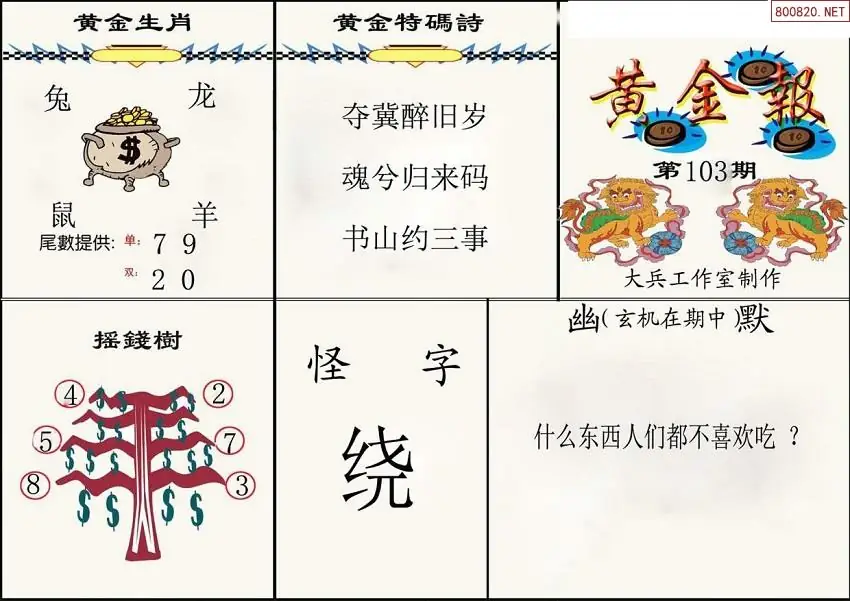 800820.NET
黄金生肖
兔 龙
$
鼠 羊
尾數提供: 单: 7 9
双: 2 0
黄金特碼詩
夺冀醉旧岁
魂兮归来码
书山约三事
黄金報
第103期
大兵工作室制作
摇錢樹
4 2
5 7
8 3
怪 字
绕
幽(玄机在期中)默
什么东西人们都不喜欢吃 ?